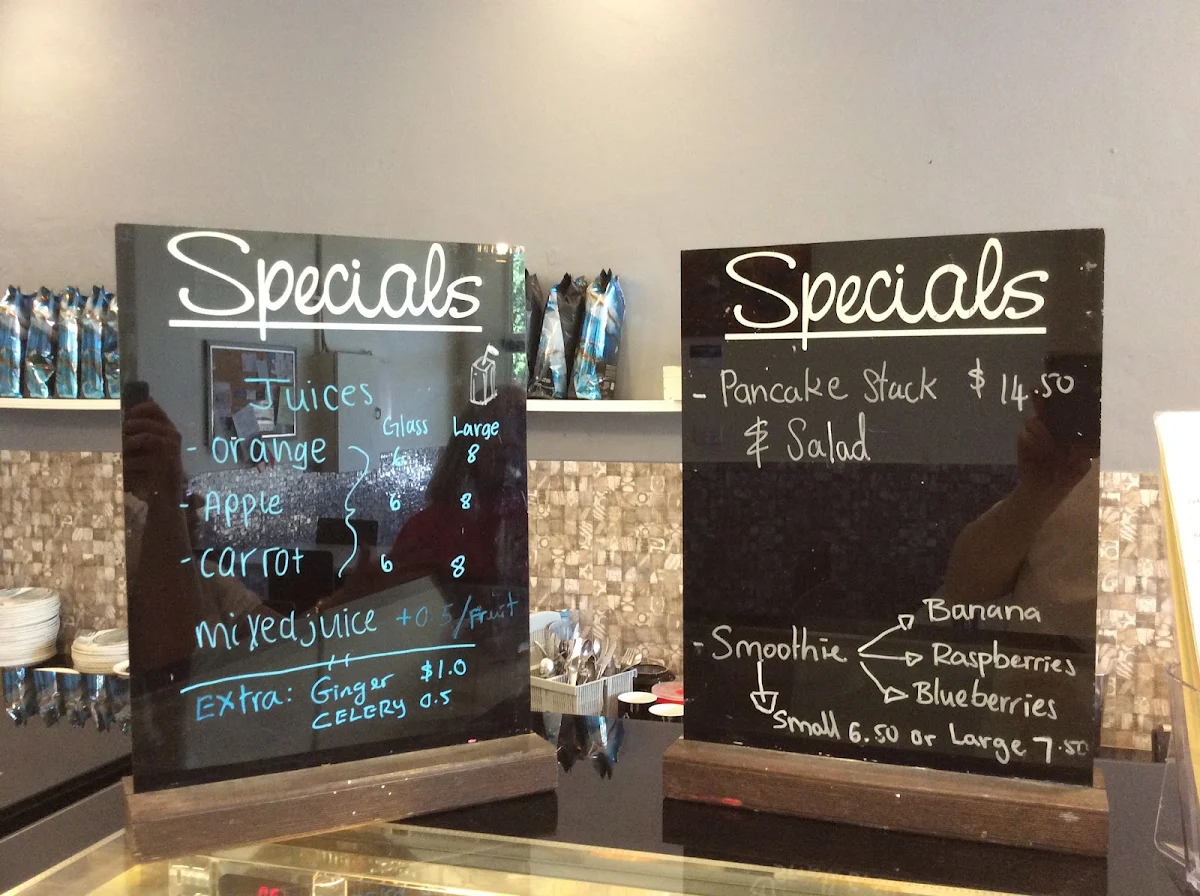 Specials
Juices
Glass Large
- Orange 6 8
- Apple 6 8
- carrot 6 8
mixed juice +0.5/Fruit
Extra: Ginger $1.0
CELERY 0.5
Specials
- Pancake Stack $14.50
$ Salad
- Smoothie
Banana
Raspberries
Blueberries
Small 6.50 or Large 7.50